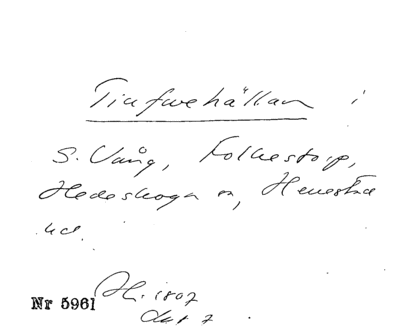 Tinfwehällan i
S. Vång, Folkestorp,
Hedeskoga m, Henestad
Nr 5961 H. 1807